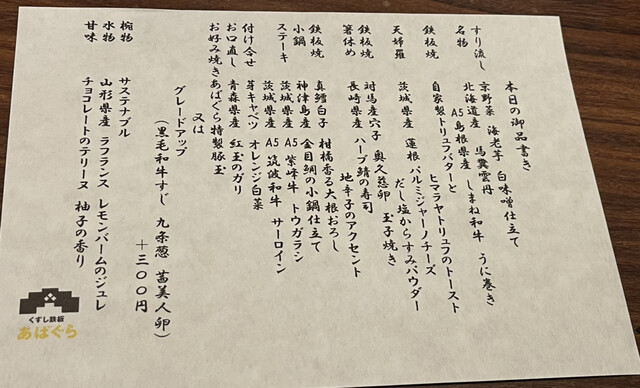 本日の御品書き
すり流し 京野菜 海老芋 白味噌仕立て
名物 北海道産 馬糞雲丹 うに巻き
A5島根県産 しまね和牛
鉄板焼 自家製トリュフバターと
ヒマラヤトリュフのトースト
天婦羅 茨城県産 蓮根 パルミジャーノチーズ
だし塩からすみパウダー
鉄板焼 対馬産穴子 奥久慈卵 玉子焼き
箸休め 長崎県産 ハーブ鯖の寿司
地辛子のアクセント
鉄板焼 真鱈白子 柑橘香る大根おろし
小鍋 神津島産 金目鯛の小鍋仕立て
ステーキ 茨城県産 A5 紫峰牛 トウガラシ
茨城県産 A5 筑波和牛 サーロイン
付け合せ 芽キャベツ オレンジ白菜
お口直し 青森県産 紅玉のガリ
お好み焼き あばぐら特製豚玉
又は
グレードアップ
(黒毛和牛すじ 九条葱 茜美人卵)
+三〇〇円
椀物 サステナブル
水物 山形県産 ラフランス レモンバームのジュレ
甘味 チョコレートのテリーヌ 柚子の香り
くずし鉄板
あばぐら